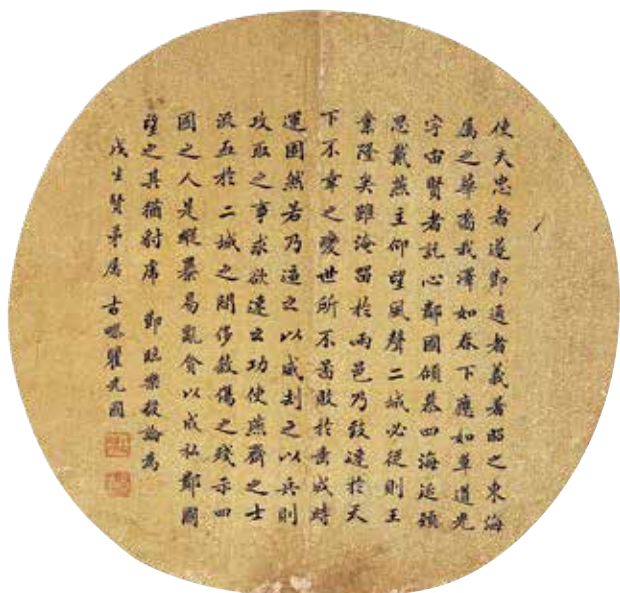 使夫忠者遂節通者義著昭之東海
屬之華裔我澤如春下應如草道光
宇宙賢者託心鄰國傾慕四海延頸
思戴燕主仰望風聲二城必從則王
業隆矣雖淹留於兩邑乃致速於天
下不幸之變世所不啚敗於垂成時
運固然若乃逼之以威劫之以兵則
攻取之事求欲速之功使燕齊之士
流血於二城之間侈殺傷之殘示四
國之人是縱暴易亂貪以成私鄰國
望之其猶豺虎 節臨樂毅論為
戊生賢弟屬 古疁瞿光國